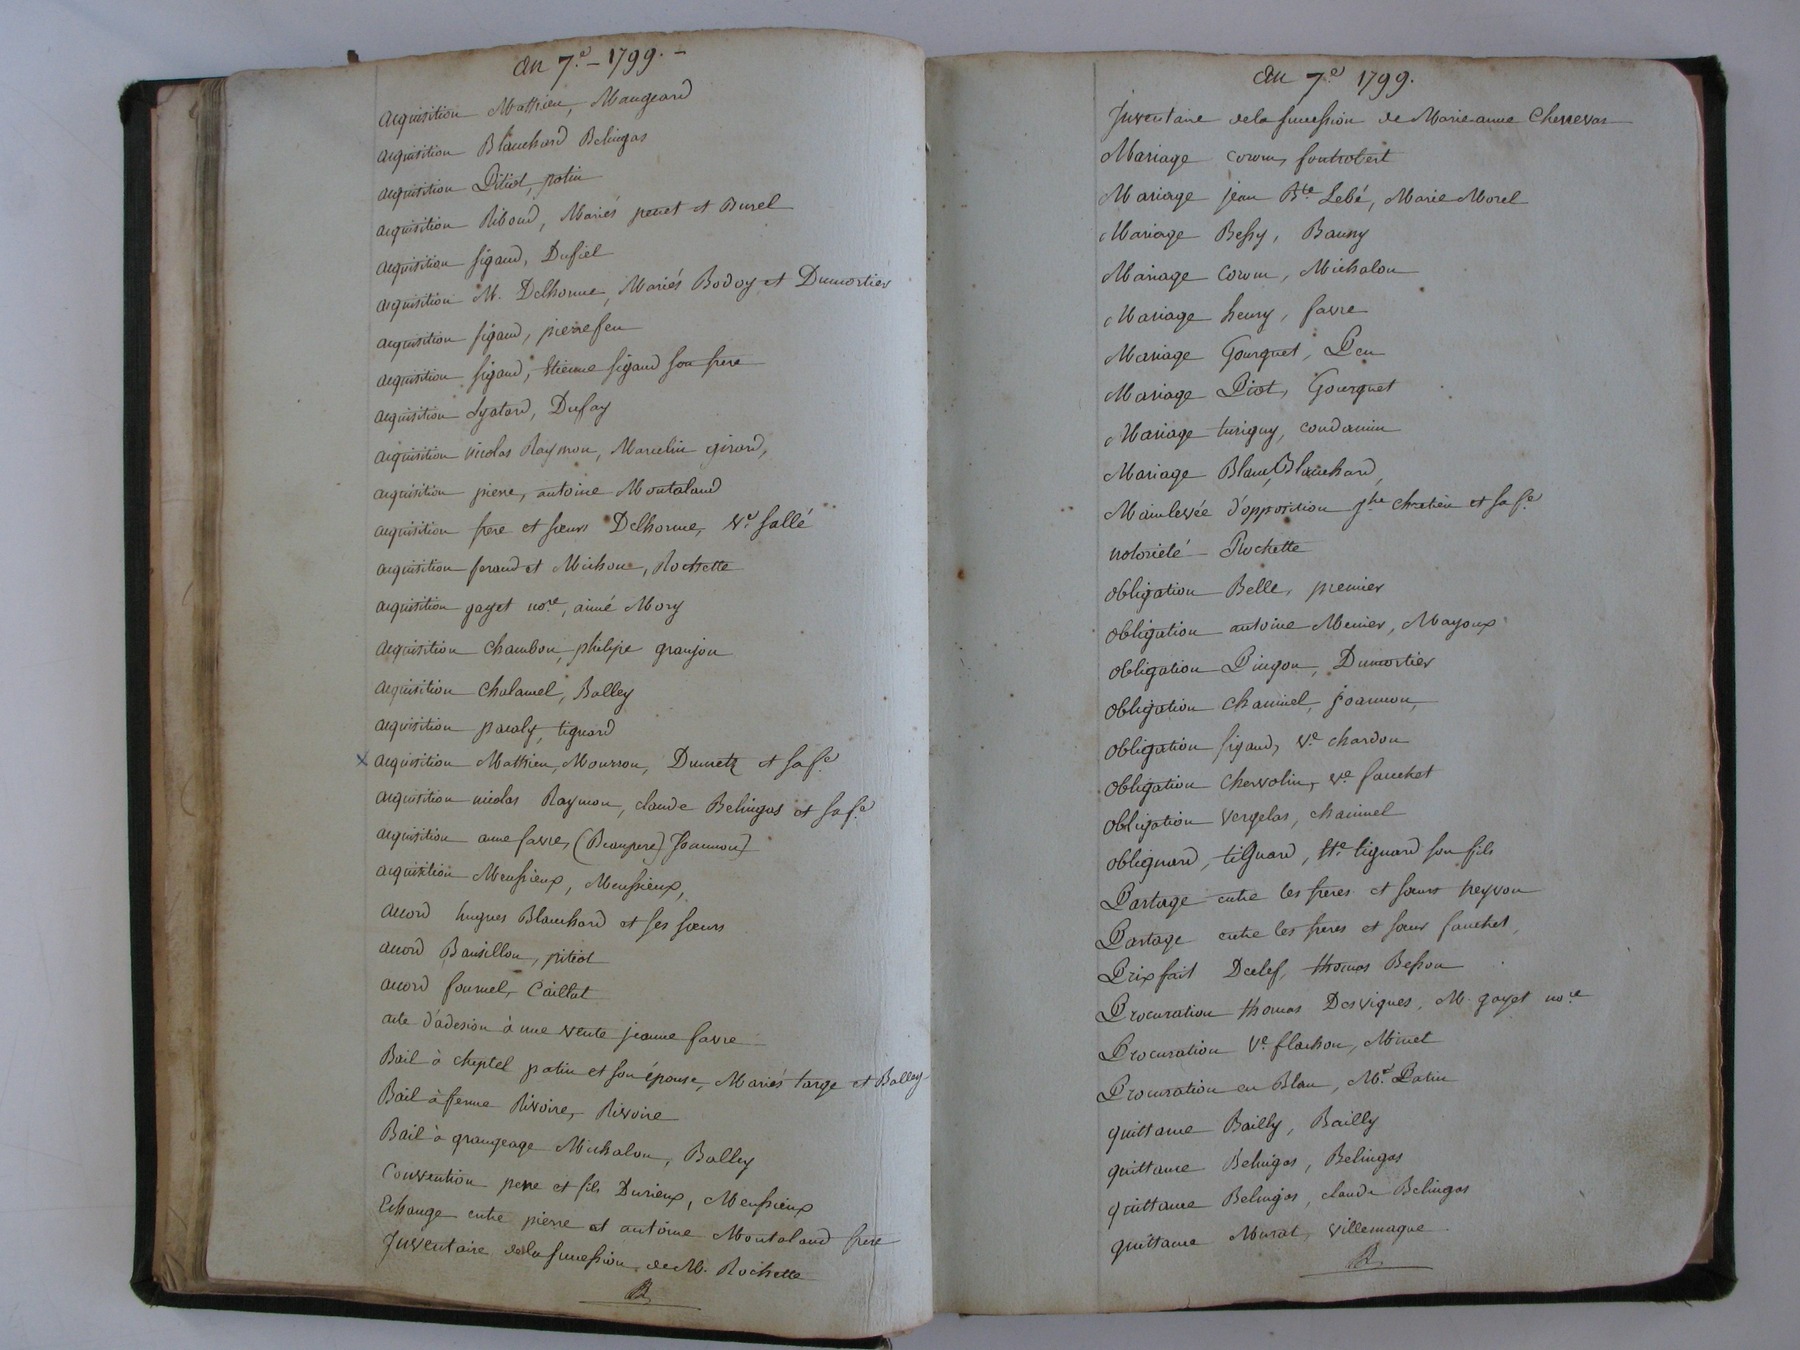 An 7.e – 1799. –
acquisition Mathieu, Maugeard
acquisition Blanchard Belingas
acquisition Pitiot, patin
acquisition Riboud, Mariés penet et Burel
acquisition sigaud, Dufiel
acquisition M. Delhorme, Mariés Bodoy et Dumortier
acquisition sigaud, pierrefeu
acquisition sigaud, Etienne sigaud son frere
acquisition Lyatard, Dufay
acquisition nicolas Raymon, Marcelin girard,
acquisition pierre, antoine Montaland
acquisition frere et sœurs Delhorme, Ve sallé
acquisition feraud et Michon, Rochette
acquisition gayet nore, aimé Mory
acquisition chambon, philipe granjon
acquisition chalamel, Balley
acquisition pacaly, tignard
x acquisition Mathieu, Mourron, Dumetz et sa fe
acquisition nicolas Raymon, claude Belingas et sa fe
acquisition anne favre, (Beaupere) Joannon)
acquisition Meussieux, Meussieux,
accord hugues Blanchard et ses sœurs
accord Bansillon, pitiot
accord fournel, Caillat
acte d'adesion à une vente jeanne favre
Bail à cheptel patin et son épouse, Mariés targe et Balley
Bail à ferme Rivoire, Rivoire
Bail à grangeage Michalon, Balley
Convention pere et fils Durieux, Meussieux
Echange entre pierre et antoine Montaland frere
Inventaire de la succession de M. Rochette
An 7.e 1799.
Inventaire de la succession de Marie anne Chenevas
Mariage corom, fontrobert
Mariage jean Bte Lebé, Marie Morel
Mariage Bessy, Bauny
Mariage corom, Michalon
Mariage henry, favre
Mariage Gourguet, Peu
Mariage Piot, Gourguet
Mariage turigny, condamin
Mariage Blanc, Blanchard,
Mainlevée d'opposition jhe chretien et sa fe
notorieté – Rochette
obligation Belle, premier
obligation antoine Menier, Mayoux
obligation Pingon, Dumortier
obligation chaminel, joannon,
obligation sigaud, Ve chardon
obligation chervolin, ve fauchet
obligation vergelas, chaminel
obligation, tignard, Ete tignard son fils
Partage entre les freres et sœurs peyvon
Partage entre les freres et sœur fauchet,
Prixfait Dclef, thomas Besson
Procuration thomas Desvignes, M. gayet nore
Procuration Ve flachon, Minet
Procuration en Blanc, Me Patin
quittance Bailly, Bailly
quittance Belingas, Belingas
quittance Belingas, claude Belingas
quittance Murat, villemagne